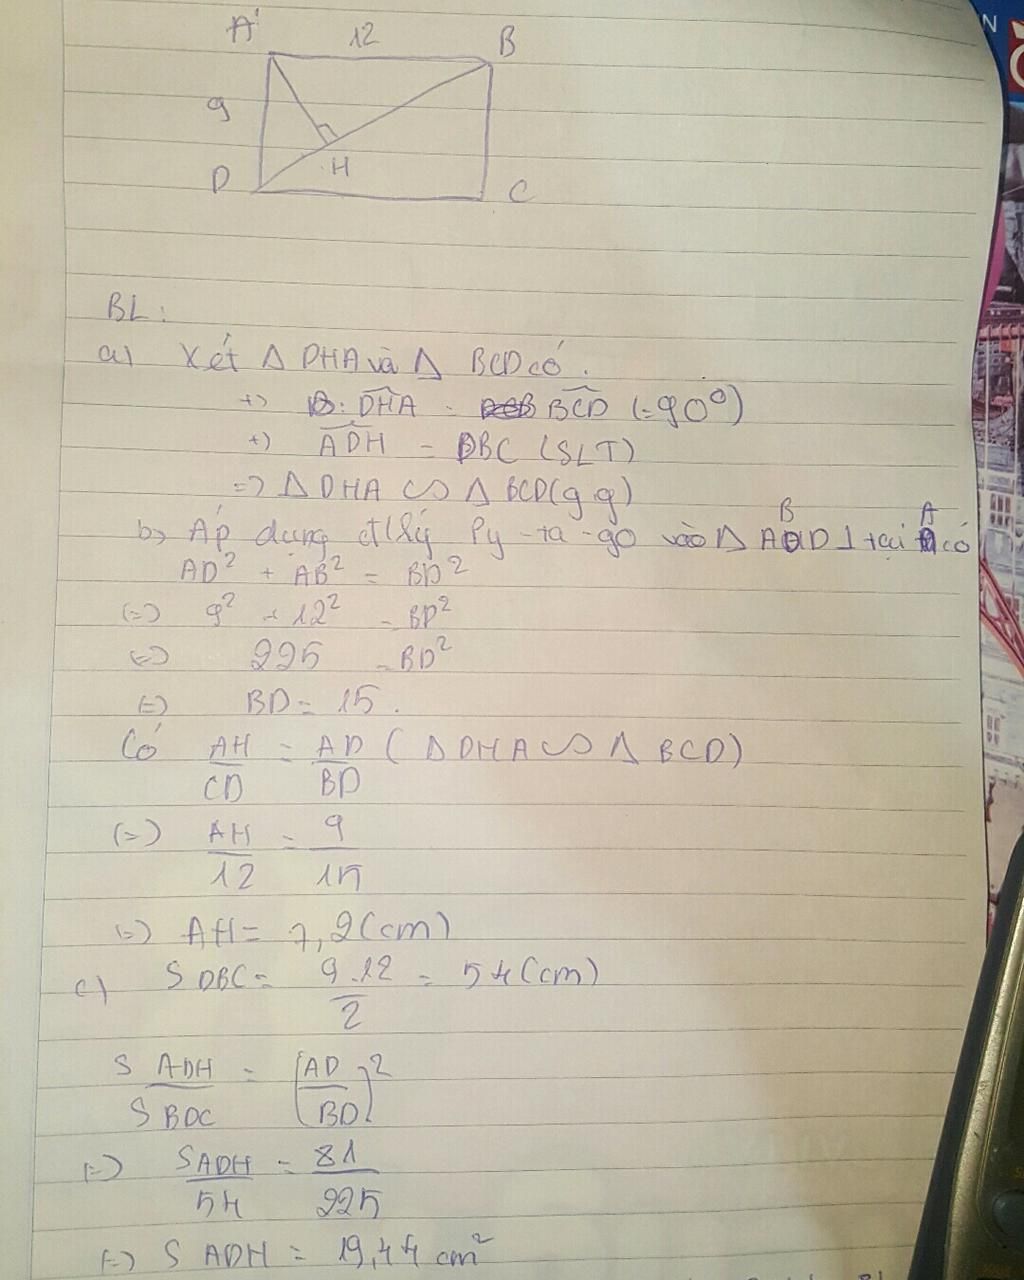 A 12 B
9
H
D C
BL:
a) Xét Δ DHA và Δ BCD có.
+) DHA = BCD (=90°)
+) ADH = DBC (SLT)
=> Δ DHA ∽ Δ BCD (g.g)
b) Áp dụng đ/lý Py-ta-go vào Δ ABD ⊥ tại A có
AD² + AB² = BD²
(=) 9² + 12² = BD²
(=) 225 = BD²
(=) BD = 15.
Có AH/CD = AD/BD (Δ DHA ∽ Δ BCD)
(=) AH/12 = 9/15
(=) AH = 7,2 (cm)
c) S DBC = 9.12/2 = 54 (cm)
S ADH/S BDC = (AD/BD)²
(=) S ADH/54 = 81/225
(=) S ADH = 19,44 cm²